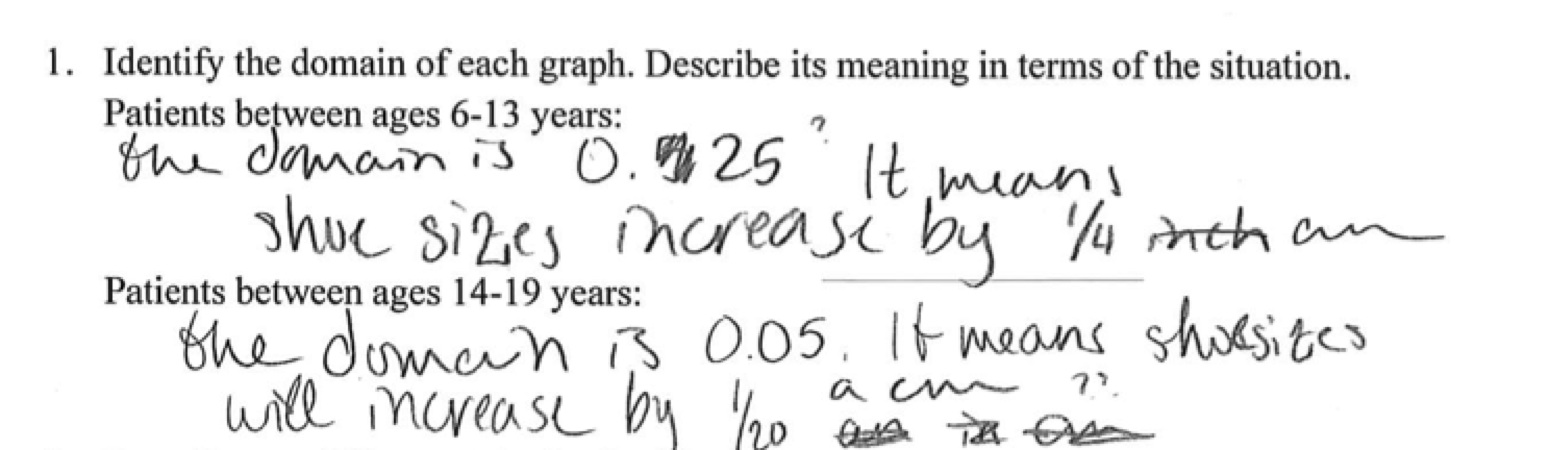 1. Identify the domain of each graph. Describe its meaning in terms of the situation.
Patients between ages 6-13 years:
the domain is 0.25 ? It means
shoe sizes increase by 1/4 inch cm
Patients between ages 14-19 years:
the domain is 0.05. It means shoesizes
will increase by 1/20 a cm ??